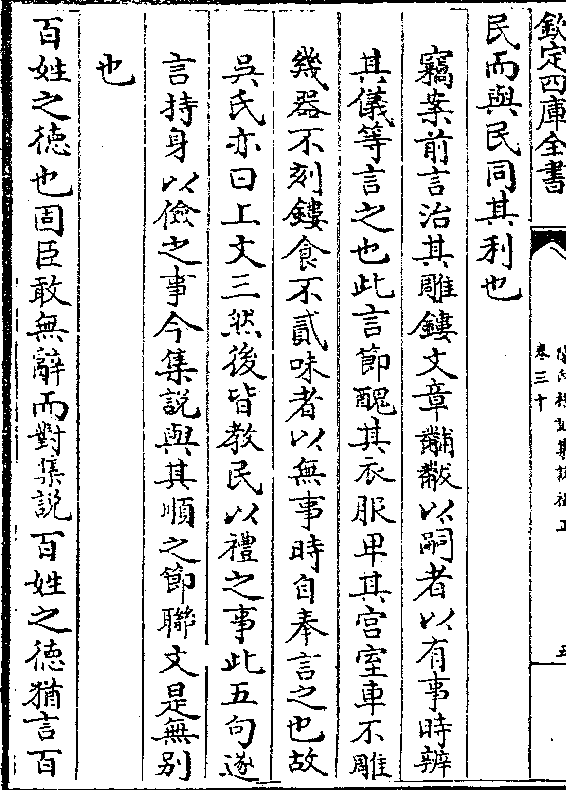 欽定四庫全書
卷三十
民而與民同其利也
竊案前言治其雕鏤文章黼黻以嗣者以有事時辨
其儀等言之也此言節醜其衣服卑其宫室車不雕
幾器不刻鏤食不貳味者以無事時自奉言之也故
吳氏亦曰上文三然後皆教民以禮之事此五句遂
言持身以儉之事今集説與其順之節聯文是無别
也
百姓之徳也固臣敢無辭而對集説百姓之徳猶言百